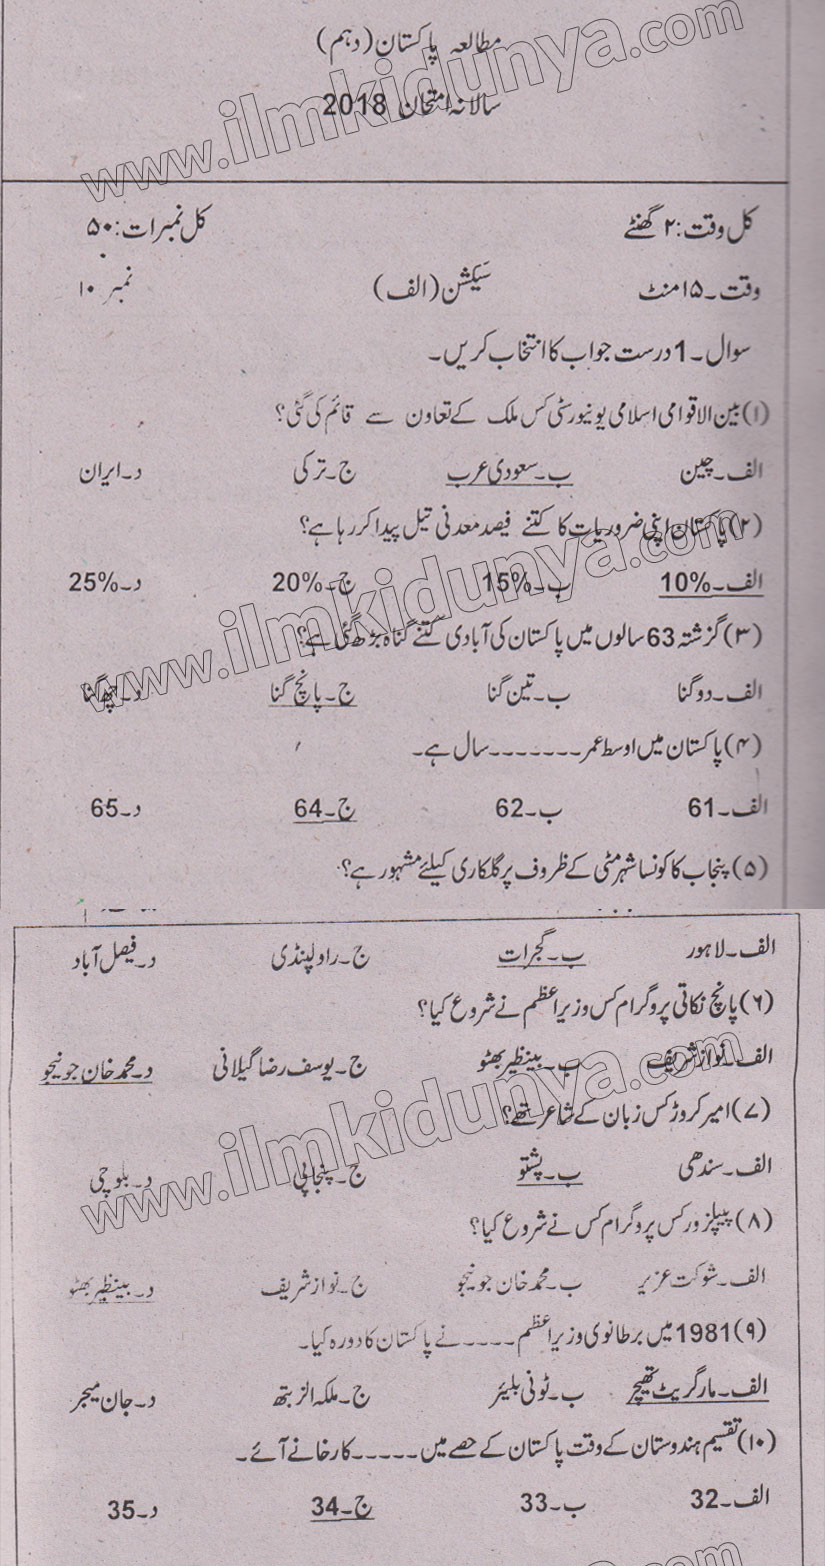 مطالعہ پاکستان (دہم)
سالانہ امتحان 2018
کل وقت: ۲ گھنٹے کل نمبرات: ۵۰
وقت۔۱۵ منٹ سیکشن (الف) نمبر ۱۰
سوال۔1 درست جواب کا انتخاب کریں۔
(۱) بین الاقوامی اسلامی یونیورسٹی کس ملک کے تعاون سے قائم کی گئی؟
الف۔چین ب۔سعودی عرب ج۔ترکی د۔ایران
(۲) پاکستان اپنی ضروریات کا کتنے فیصد معدنی تیل پیدا کر رہا ہے؟
الف۔10% ب۔15% ج۔20% د۔25%
(۳) گزشتہ 63 سالوں میں پاکستان کی آبادی کتنے گناہ بڑھ گئی ہے؟
الف۔دو گنا ب۔تین گنا ج۔پانچ گنا د۔چھ گنا
(۴) پاکستان میں اوسط عمر۔۔۔۔۔۔۔سال ہے۔
الف۔61 ب۔62 ج۔64 د۔65
(۵) پنجاب کا کونسا شہر مٹی کے ظروف پر گلکاری کیلئے مشہور ہے؟
الف۔لاہور ب۔گجرات ج۔راولپنڈی د۔فیصل آباد
(۶) پانچ نکاتی پروگرام کس وزیراعظم نے شروع کیا؟
الف۔نواز شریف ب۔بینظیر بھٹو ج۔یوسف رضا گیلانی د۔محمد خان جونیجو
(۷) امیر کروڑ کس زبان کے شاعر تھے؟
الف۔سندھی ب۔پشتو ج۔پنجابی د۔بلوچی
(۸) پیپلز ورکس پروگرام کس نے شروع کیا؟
الف۔شوکت عزیز ب۔محمد خان جونیجو ج۔نواز شریف د۔بینظیر بھٹو
(۹) 1981 میں برطانوی وزیراعظم۔۔۔۔نے پاکستان کا دورہ کیا۔
الف۔مارگریٹ تھیچر ب۔ٹونی بلیئر ج۔ملکہ الزبتھ د۔جان میجر
(۱۰) تقسیم ہندوستان کے وقت پاکستان کے حصے میں۔۔۔۔۔کارخانے آئے۔
الف۔32 ب۔33 ج۔34 د۔35
www.ilmkidunya.com
www.ilmkidunya.com
www.ilmkidunya.com